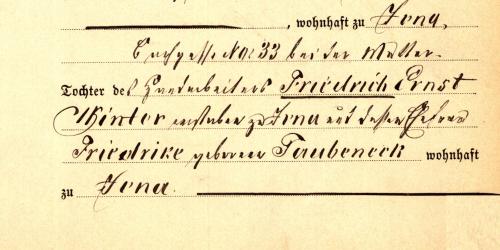 , wohnhaft zu Jena,
No: 33 bei der Mutter.
Tochter des Handarbeiters Friedrich Ernst
Winter verstorben zu Jena und dessen Ehefrau
Friedrike geborener Taubeneck wohnhaft
zu Jena.